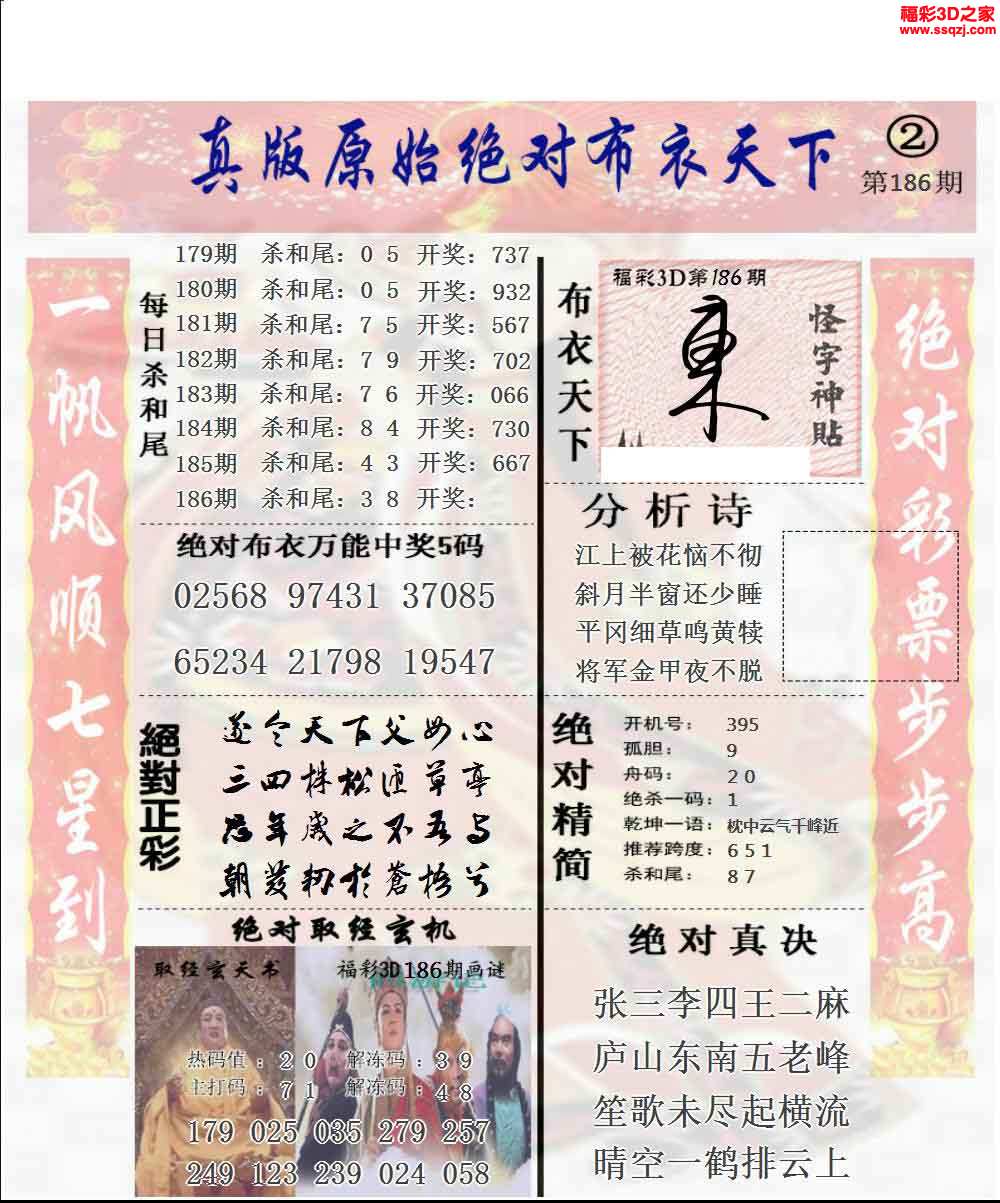 福彩3D之家
www.ssqzj.com
真版原始绝对布衣天下 ②
第186期
一帆风顺七星到
每日杀和尾
179期 杀和尾：0 5 开奖：737
180期 杀和尾：0 5 开奖：932
181期 杀和尾：7 5 开奖：567
182期 杀和尾：7 9 开奖：702
183期 杀和尾：7 6 开奖：066
184期 杀和尾：8 4 开奖：730
185期 杀和尾：4 3 开奖：667
186期 杀和尾：3 8 开奖：
绝对布衣万能中奖5码
02568 97431 37085
65234 21798 19547
絕對正彩
遂令天下父母心
三四株松匝草亭
忽年歲之不吾与
朝发轫於蒼梧兮
绝对取经玄机
取经玄天书
福彩3D186期画谜
热码值：2 0 解冻码：3 9
主打码：7 1 解冻码：4 8
179 025 035 279 257
249 123 239 024 058
布衣天下
福彩3D第186期
怪字神貼
分析诗
江上被花恼不彻
斜月半窗还少睡
平冈细草鸣黄犊
将军金甲夜不脱
绝对精简
开机号： 395
孤胆： 9
舟码： 2 0
绝杀一码：1
乾坤一语：枕中云气千峰近
推荐跨度：6 5 1
杀和尾： 8 7
绝对真决
张三李四王二麻
庐山东南五老峰
笙歌未尽起横流
晴空一鹤排云上
绝对彩票步步高